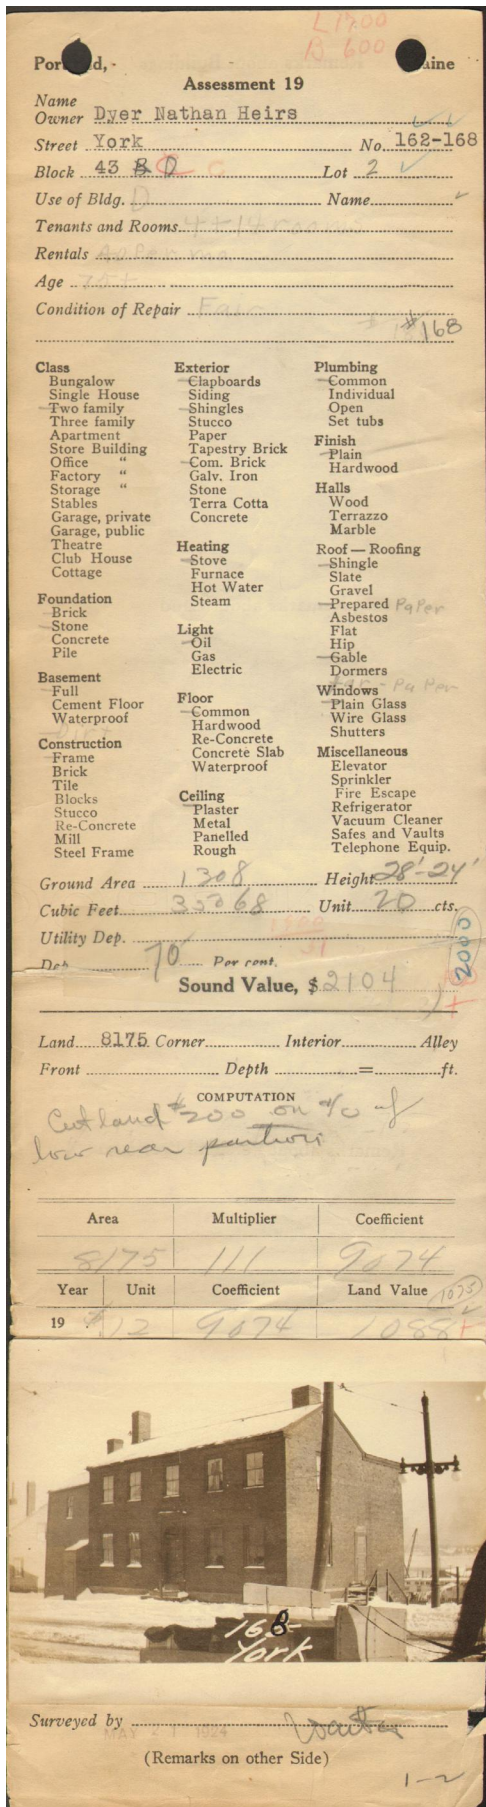 L 1700
B 600
Portland, - Maine
Assessment 19
Name
Owner Dyer Nathan Heirs
Street York No. 162-168
Block 43 B D C Lot 2
Use of Bldg. D Name
Tenants and Rooms 4+14 rooms
Rentals
Age 75+
Condition of Repair Fair
#168
Class
Bungalow
Single House
Two family
Three family
Apartment
Store Building
Office "
Factory "
Storage "
Stables
Garage, private
Garage, public
Theatre
Club House
Cottage
Foundation
Brick
Stone
Concrete
Pile
Basement
Full
Cement Floor
Waterproof
Dirt
Construction
Frame
Brick
Tile
Blocks
Stucco
Re-Concrete
Mill
Steel Frame
Exterior
Clapboards
Siding
Shingles
Stucco
Paper
Tapestry Brick
Com. Brick
Galv. Iron
Stone
Terra Cotta
Concrete
Heating
Stove
Furnace
Hot Water
Steam
Light
Oil
Gas
Electric
Floor
Common
Hardwood
Re-Concrete
Concrete Slab
Waterproof
Ceiling
Plaster
Metal
Panelled
Rough
Plumbing
Common
Individual
Open
Set tubs
Finish
Plain
Hardwood
Halls
Wood
Terrazzo
Marble
Roof — Roofing
Shingle
Slate
Gravel
Prepared Paper
Asbestos
Flat
Hip
Gable
Dormers
Tar - Paper
Windows
Plain Glass
Wire Glass
Shutters
Miscellaneous
Elevator
Sprinkler
Fire Escape
Refrigerator
Vacuum Cleaner
Safes and Vaults
Telephone Equip.
Ground Area 1308 Height 28'-24'
Cubic Feet 35068 Unit 20 cts.
Utility Dep.
Dep. 70 Per cent.
2000
Sound Value, $ 2104
Land 8175 Corner Interior Alley
Front Depth = ft.
COMPUTATION
Cut land $200 on % of
low rear portion
Area Multiplier Coefficient
8175 111 9074
Year Unit Coefficient Land Value 1075
19 $.12 9074 1088
168
York
Surveyed by
MAY 21 1924
(Remarks on other Side)
1-2